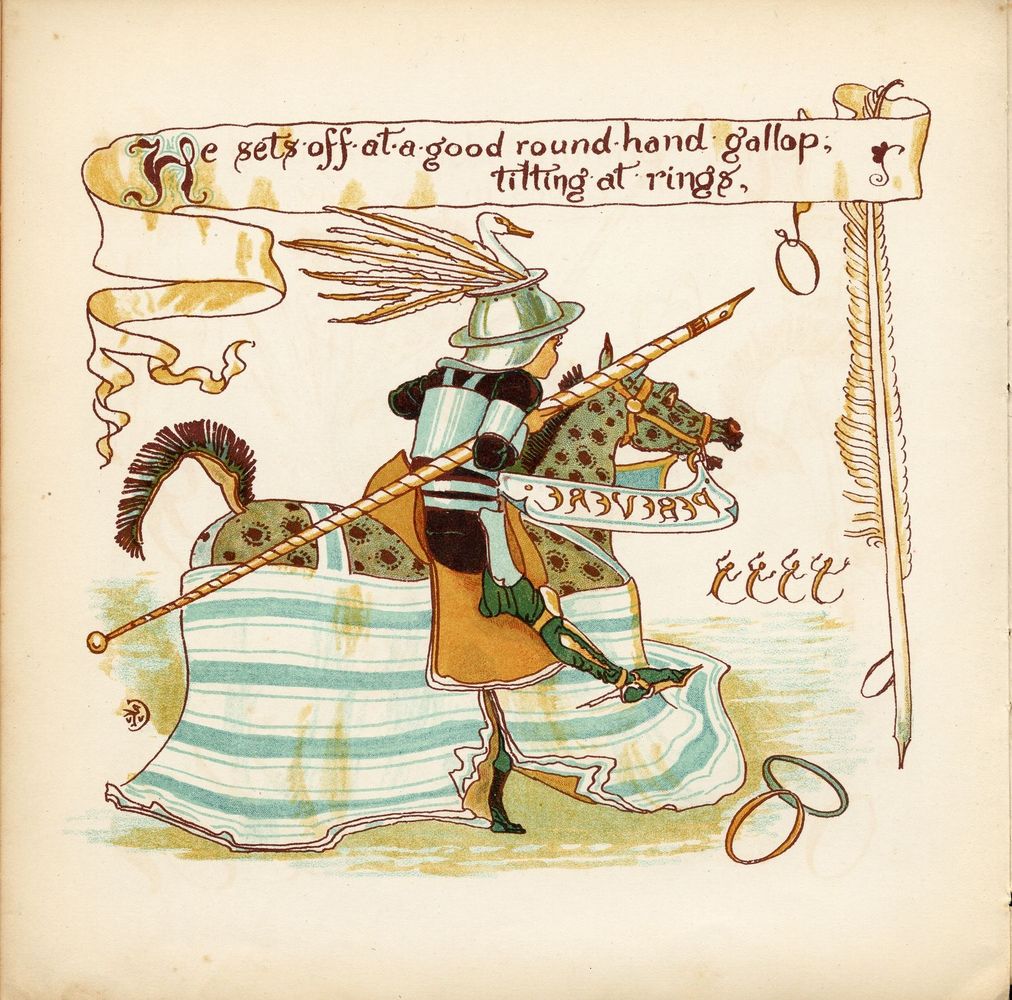 He sets·off·at·a·good round·hand gallop;
tilting·at·rings,
PERSEVERE